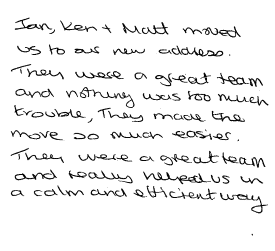 Ian, Ken + Matt moved
us to our new address.
They were a great team
and nothing was too much
trouble, They made the
move so much easier.
They were a great team
and really helped us in
a calm and efficient way